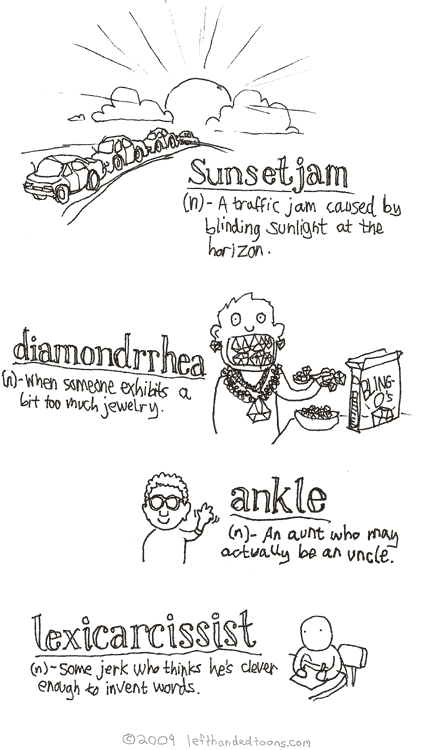 Sunsetjam
(n)- A traffic jam caused by
blinding sunlight at the
horizon.
diamondrrhea
(n)- When someone exhibits a
bit too much jewelry.
BLING-
O's
ankle
(n)- An aunt who may
actually be an uncle.
lexicarcissist
(n)- Some jerk who thinks he's clever
enough to invent words.
©2009 lefthandedtoons.com